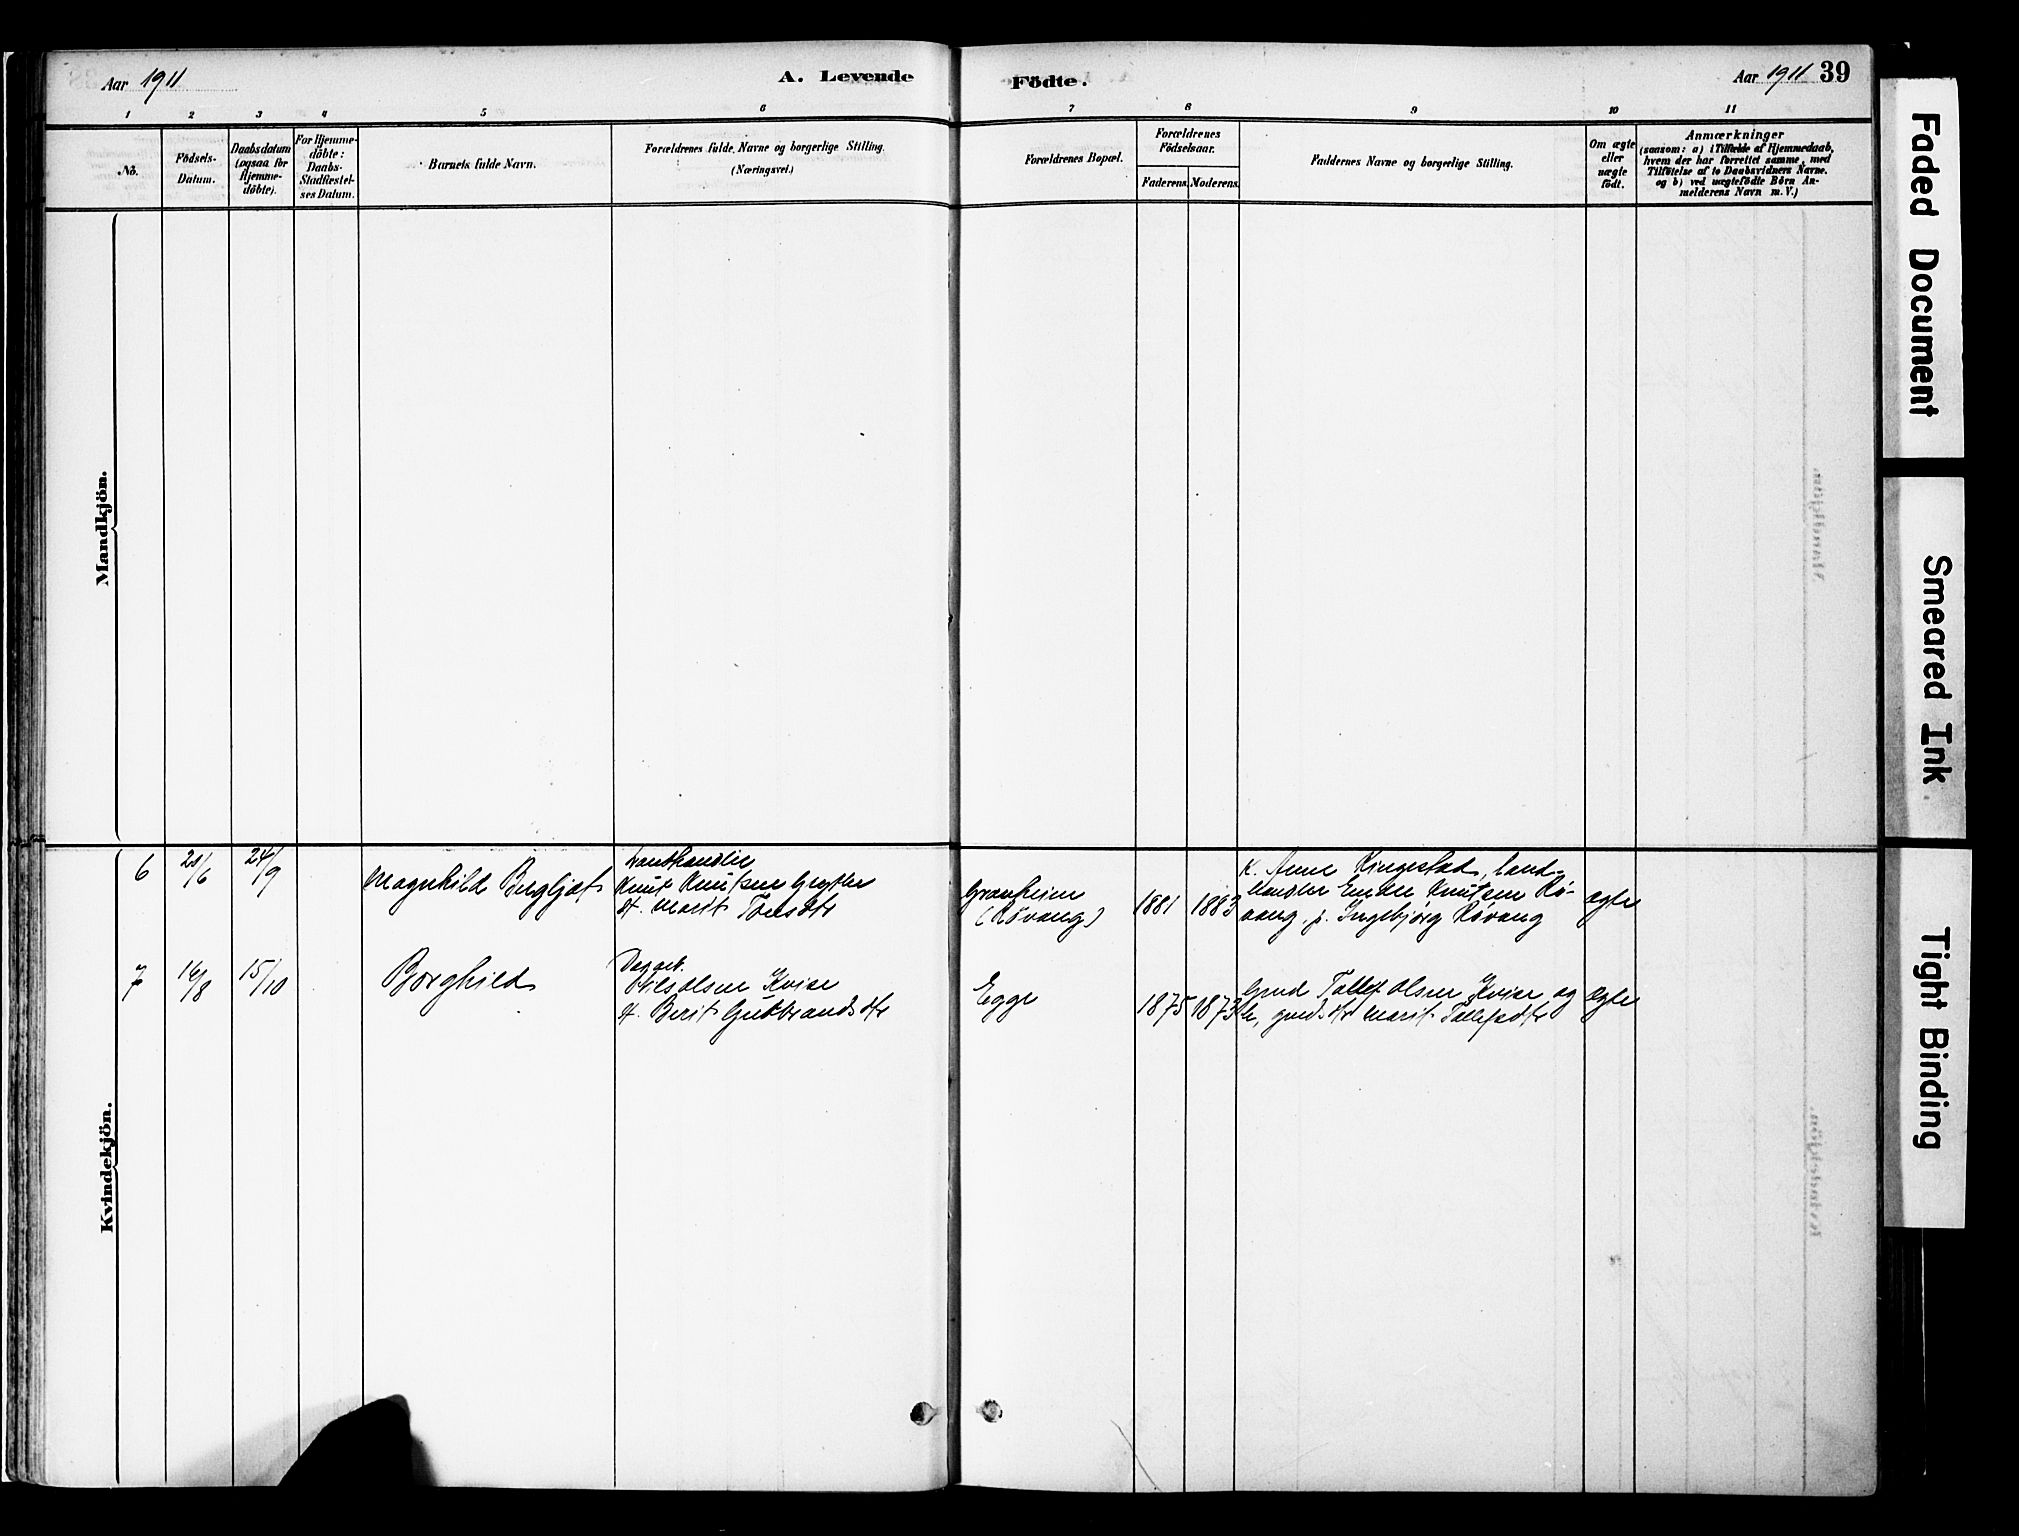 Aar 1911
A. Levende
Födte.
Aar 1911 39
1 2 3 4 5 6 7 8 9 10 11
No.
Födsels-
Datum.
Daabsdatum
(ogsaa for
Hjemme-
döbte).
For Hjemme-
döbte:
Daabs-
Stadfæstel-
ses Datum.
Barnets fulde Navn.
Forældrenes fulde Navne og borgerlige Stilling.
(Næringsvei.)
Forældrenes Bopæl.
Forældrenes
Födselsaar.
Faderens.
Moderens.
Faddernes Navne og borgerlige Stilling.
Om ægte
eller
uægte
født.
Anmærkninger
(saasom: a) i Tilfælde af Hjemmedaab,
hvem der har forrettet samme, med
Tilföielse af to Daabsvidners Navne.
og b) ved uægtefödte Börn An-
melderens Navn m. V.)
Mandkjön.
Kvindekjön.
6
24/9
Magnhild Bergljot
Landhandler
Knut Knutsen
H. Marit
Granheim
(Røvang)
1881
1883
K. Anne Ringestad, land-
handler Knutsen Rø-
vang, p. Ingebjørg Røvang
ægte
7
16/8
15/10
Borghild
Dagarb.
Nils Olsen Kvien
H. Berit Gudbrandsdtr
Egge
1875
1873
Gmd Tollef Olsen Kvien og
h, gmdsdtr Marit Tollefsdtr
ægte
Faded Document
Smeared Ink
Tight Binding